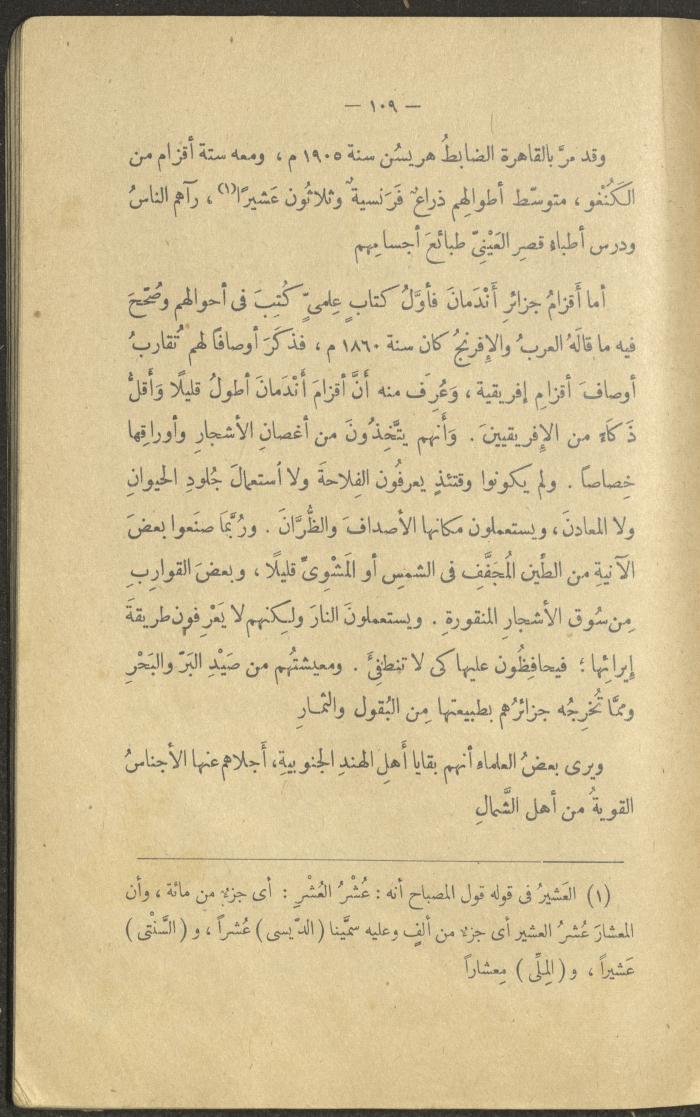 — ١٠٩ —
وقد مرَّ بالقاهرة الضابطُ هريسُن سنة ١٩٠٥ م ، ومعه ستة أقزام من
الكُنْغو ، متوسّط أطوالهم ذراعٌ فَرَنسيةٌ وثلاثُون عَشيرًا(١) ، رآهم الناسُ
ودرس أطباء قصرِ العَيْنِيّ طبائعَ أجسامِهم
أما أَقزامُ جزائرِ أَنْدَمانَ فأوَّلُ كتابٍ عِلميٍّ كُتِبَ فى أحوالهم وصُحِّحَ
فيه ما قالَهُ العربُ والإفرنجُ كان سنة ١٨٦٠ م ، فذكَرَ أوصافاً لهم تُقاربُ
أوصافَ أقزامِ إفريقية ، وَعُرِفَ منه أَنَّ أقزامَ أَنْدَمانَ أطولُ قليلًا وَأَقلُّ
ذَكَاءً من الإفريقيينَ . وَأَنهم يتَّخِذُونَ من أغصانِ الأشجارِ وأوراقِها
خِصاصاً . ولم يكونوا وقتئذٍ يعرفُون الفِلاحةَ ولا أستعمالَ جُلودِ الحيوانِ
ولا المعادنَ ، ويستعملون مكانها الأصدافَ والظُّرَّانَ . ورُبَّمَا صنَعوا بعضَ
الآنيةِ من الطِّين المُجَفَّفِ فى الشمسِ أو المَشْوِىِّ قليلًا ، وبعضَ القواربِ
مِن سُوق الأشجارِ المنقورةِ . ويستعملونَ النارَ ولكنهم لا يَعْرِفون طريقةَ
إيرائِها ؛ فيحافِظُون عليها كى لا تنطفئَ . ومعيشتُهم من صَيْدِ البَرّ والبَحْرِ
وممَّا تُخرِجُه جزائرُهم بطبيعتها مِن البُقول والثمارِ
ويرى بعضُ العلماء أنهم بقايا أَهلِ الهندِ الجنوبيةِ، أَجلاهم عنها الأجناسُ
القويةُ من أهل الشَّمالِ
(١) العَشيرُ فى قوله قول المصباح أنه : عُشْرُ العُشْرِ : أى جزء من مائة ، وأن
المعشارَ عُشرُ العشير أى جزء من ألفٍ وعليه سمَّينا (الدّيسى) عُشراً ، و (السَّنْتى)
عَشيراً ، و (المِلِّى) مِعشاراً